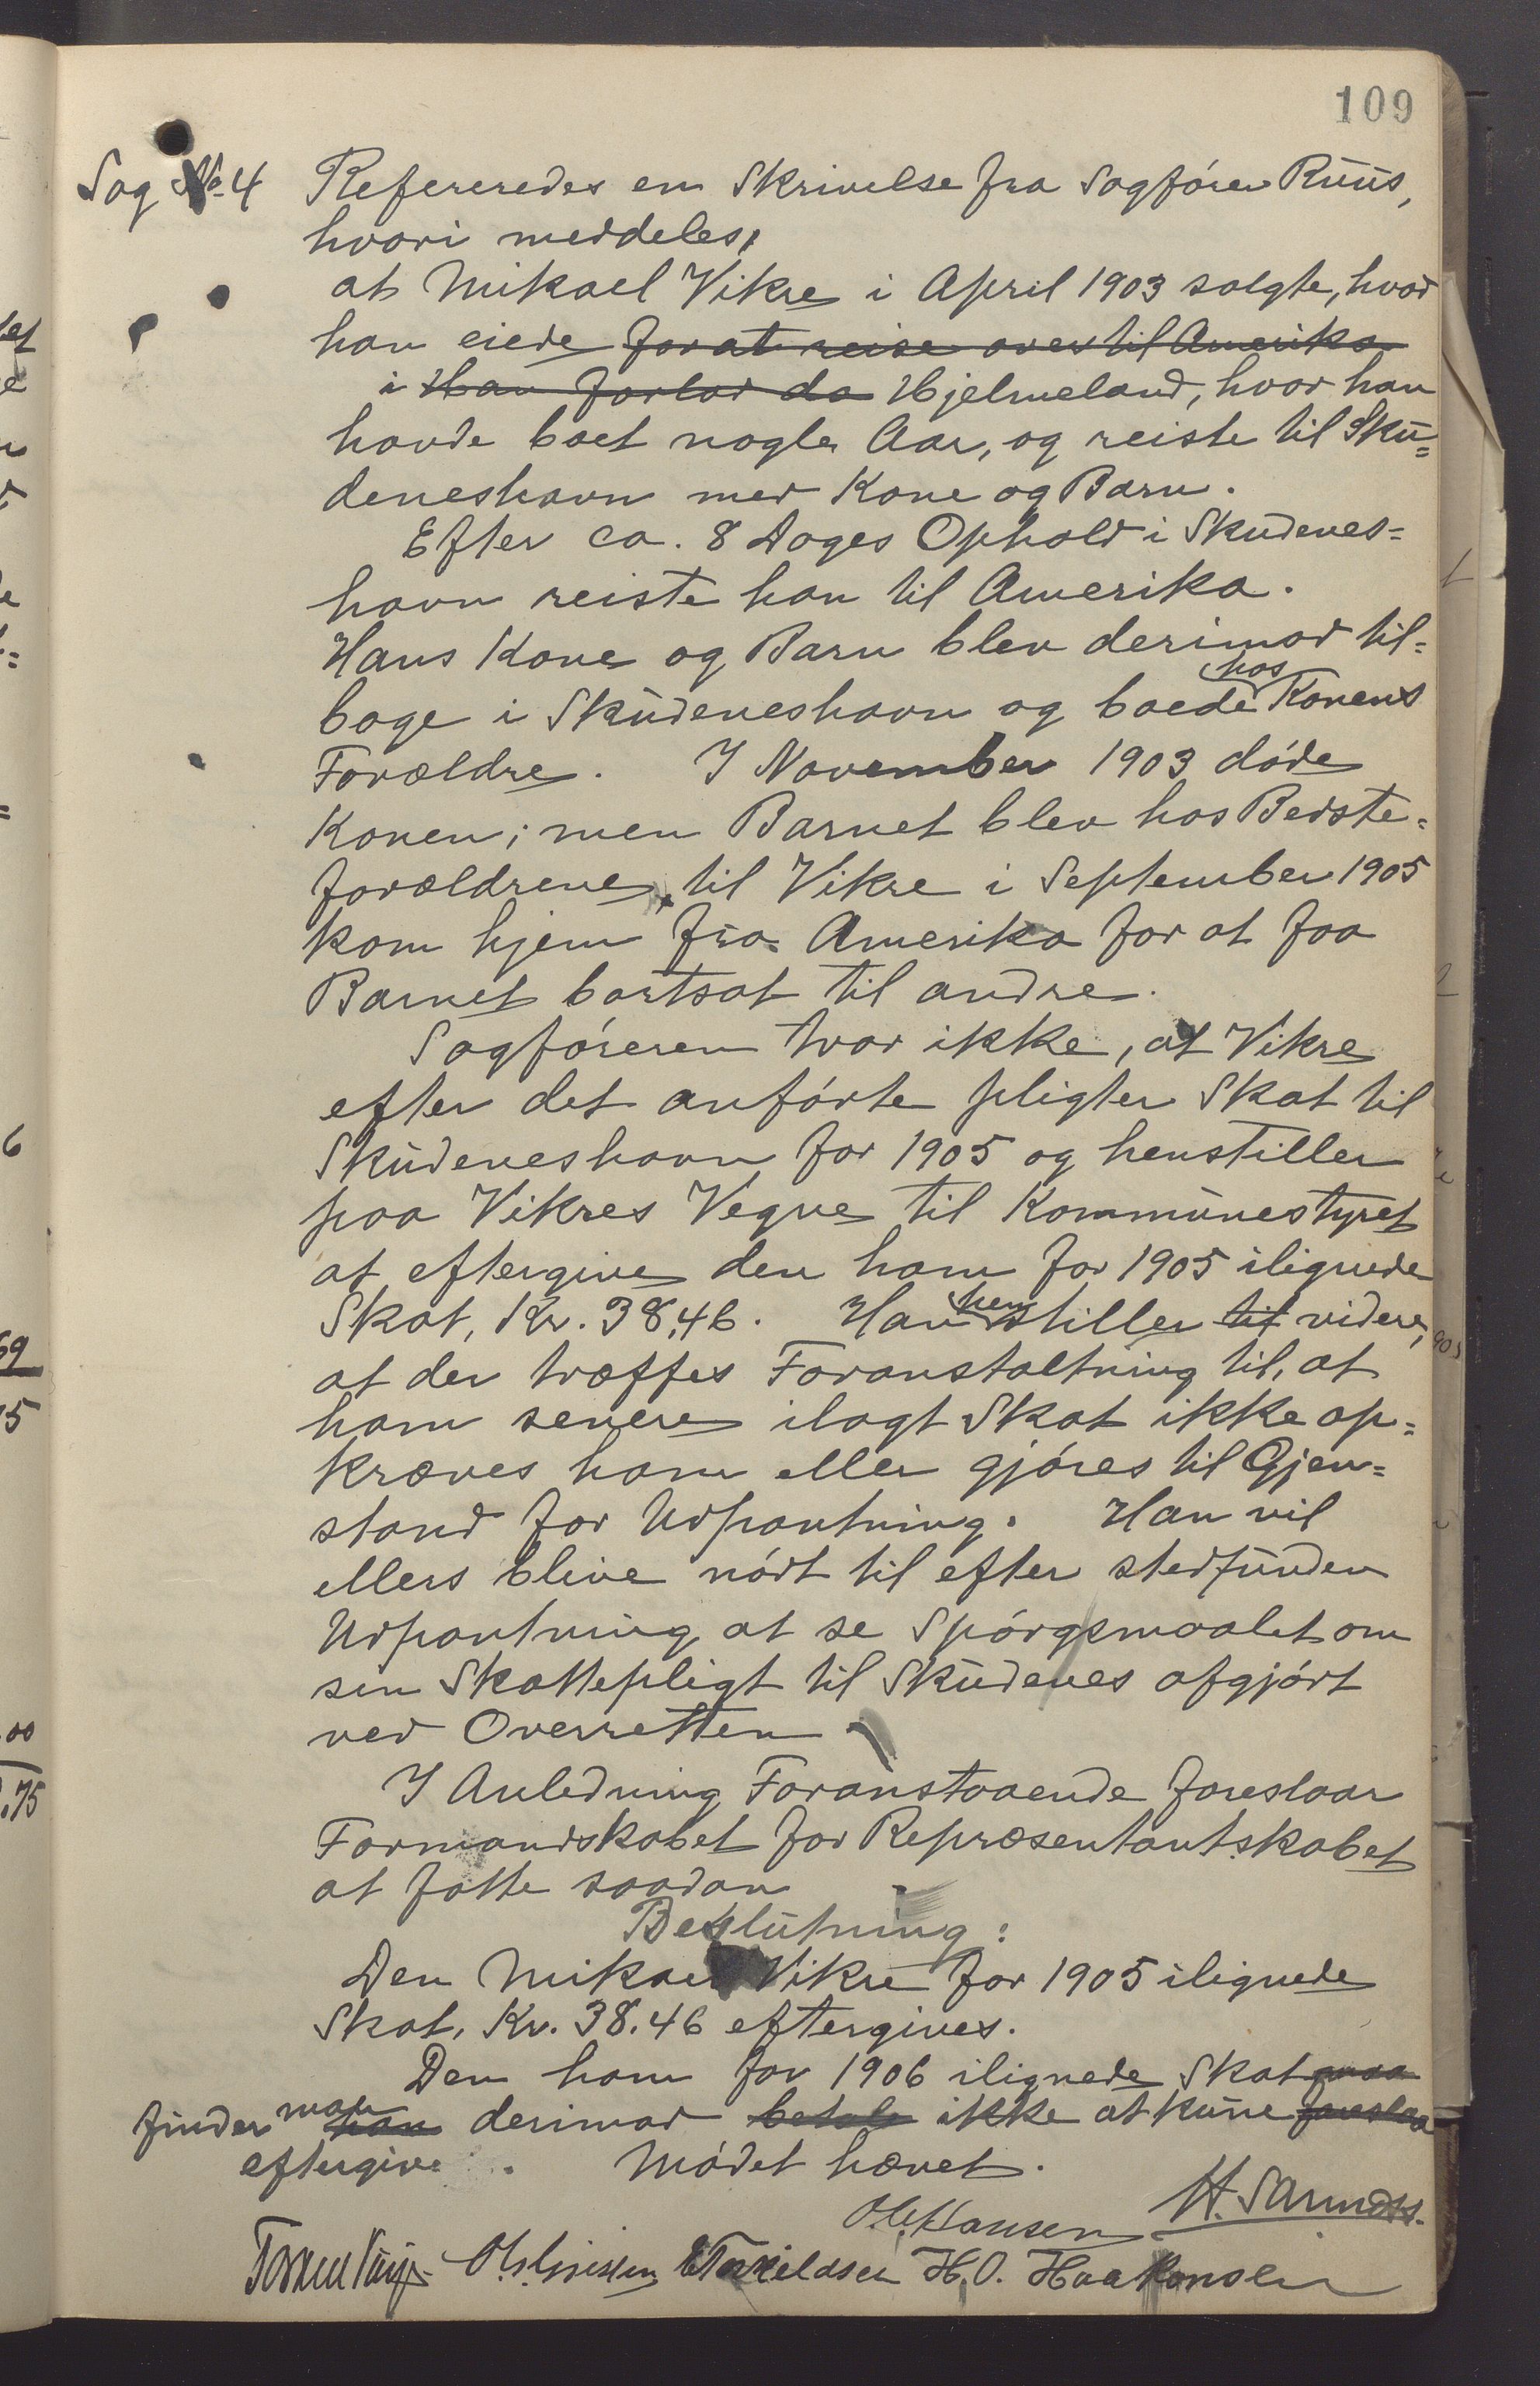 109
Sag No 4 Refereredes en Skrivelse fra Sagfører Ruus,
hvori meddeles,
at Mikael Vikre i April 1903 solgte, hvad
han eiede for at reise over til Amerika
i Han forlod da Hjelmeland, hvor han
havde boet nogle Aar, og reiste til Sku=
deneshavn med Kone og Barn.
Efter ca. 8 Dages Ophold i Skudenes=
havn reiste han til Amerika.
Hans Kone og Barn blev derimod til=
bage i Skudeneshavn og boede hos Konens
Forældre. I November 1903 døde
Konen; men Barnet blev hos Bedste=
forældrene, til Vikre i September 1905
kom hjem fra Amerika for at faa
Barnet bortsat til andre.
Sagføreren tror ikke, at Vikre
efter det anførte pligter Skat til
Skudeneshavn for 1905 og henstiller
paa Vikres Vegne til Kommunestyret
at eftergive den ham for 1905 ilignede
Skat, Kr. 38,46. Han henstiller til videre,
at der træffes Foranstaltning til, at
ham senere ilagt Skat ikke op=
kræves ham eller gjøres til Gjen=
stand for Udpantning. Han vil
ellers blive nødt til efter stedfunden
Udpantning at se Spørgsmaalet om
sin Skattepligt til Skudenes afgjort
ved Overretten
I Anledning Foranstaaende foreslaar
Formandskabet for Repræsentantskabet
at fatte saadan
Beslutning:
Den Mikael Vikre for 1905 ilignede
Skat, Kr. 38.46 eftergives.
Den ham for 1906 ilignede Skat maa
finder man han derimod betale ikke at kune foreslaa
eftergive. Mødet hævet.
O. Hansen H. Samuels.
E Torkildsen H. O. Haakonsen